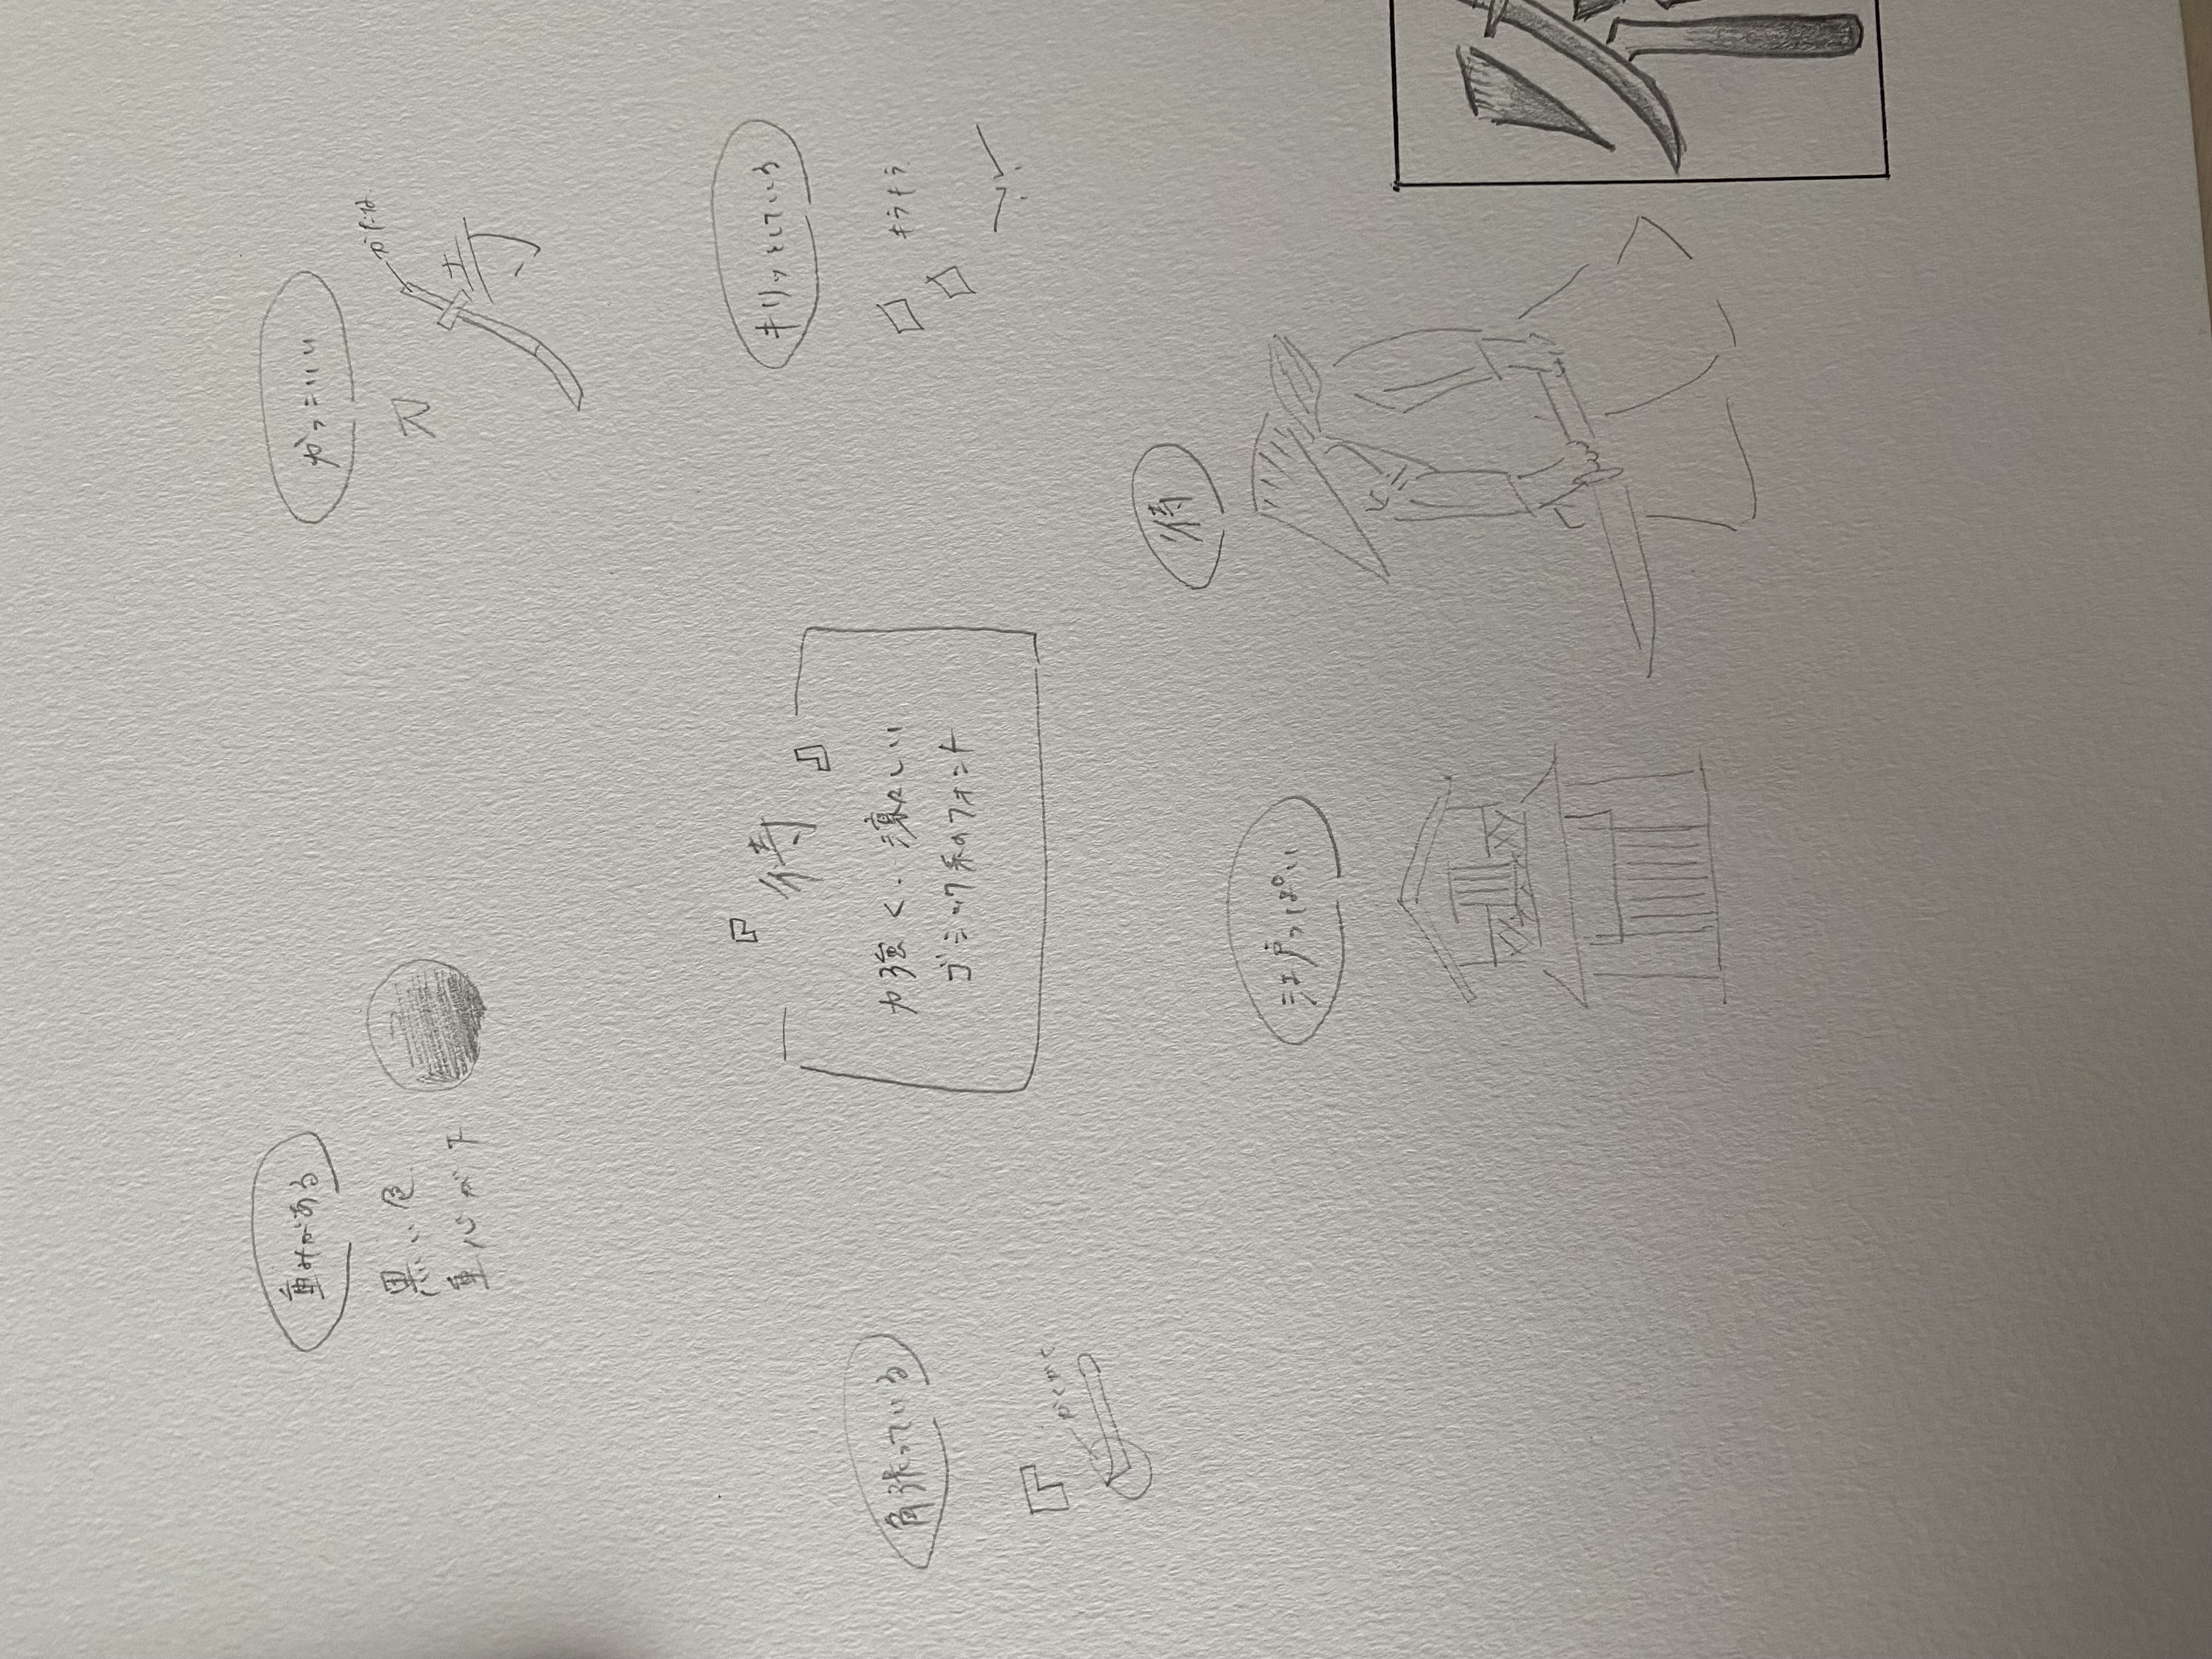 重みがある
黒い色
重心が下
かっこいい
刀
かたな
寺
『待』
力強く、凛々しい
ゴシック系のフォント
キリッとしている
キラキラ
角張っている
かくかく
待
江戸っぽい